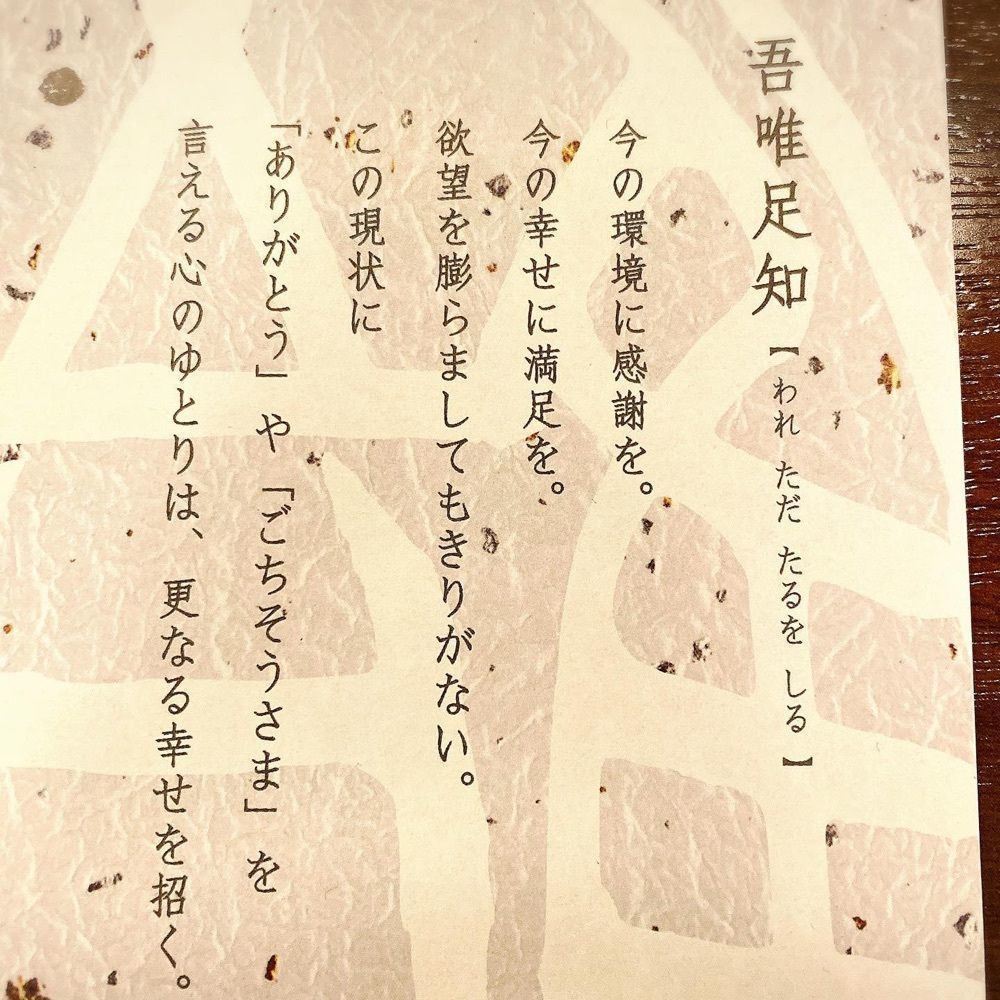 吾唯足知【われ ただ たるを しる】
今の環境に感謝を。
今の幸せに満足を。
欲望を膨らましてもきりがない。
この現状に
「ありがとう」や「ごちそうさま」を
言える心のゆとりは、更なる幸せを招く。